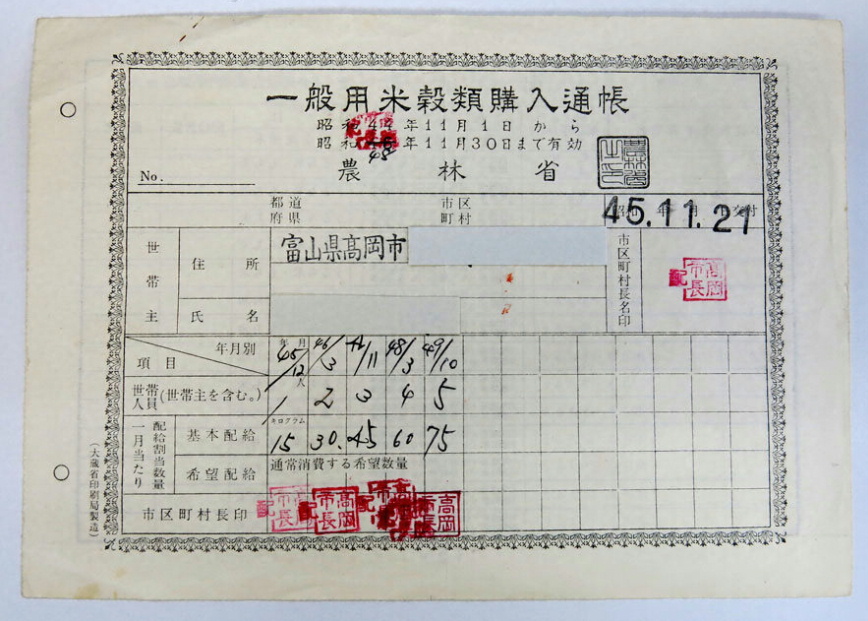 一般用米穀類購入通帳
昭和44年11月1日から
昭和48年11月30日まで有効
農林省
農林省之印
No.
都道府県
市区町村
45.11.21
交付
世帯主
住所
富山県高岡市
市区町村長名印
高岡市長
氏名
年月別
項目
年 月
45/12
46/3
/11
48/3
49/10
世帯人員(世帯主を含む。)
人
1 2 3 4 5
一月当たり配給割当数量
基本配給
キログラム
15 30. 45 60 75
希望配給
通常消費する希望数量
市区町村長印
高岡市長
高岡市長
高岡市長
高岡市長
(大蔵省印刷局製造)